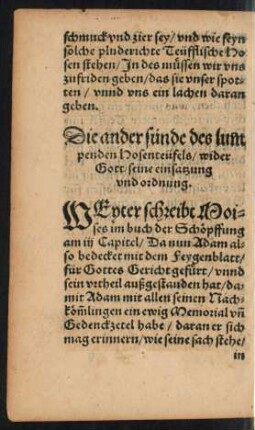 schmuck vnd zier sey/ vnd wie feyn
solche pluderichte Teüfflische Ho-
sen stehen/ Jn des müssen wir vns
zufriden geben/ das sie vnser spot-
ten / vnnd vns ein lachen daran
geben.
Die ander sünde des lum
penden Hosenteufels/ wider
Gott/ seine einsatzung
vnd ordnung.
WEyter schreibt Moi-
ses im buch der Schöpffung
am iij Capitel/ Da nun Adam al-
so bedecket mit dem Feygenblatt/
für Gottes Gericht gefürt/ vnnd
sein vrtheil außgestanden hat/ da-
mit Adam mit allen seinen Nach-
kom̃lingen ein ewig Memorial vñ
Gedenckzetel habe / daran er sich
mag erinnern/ wie seine sach stehe/
in